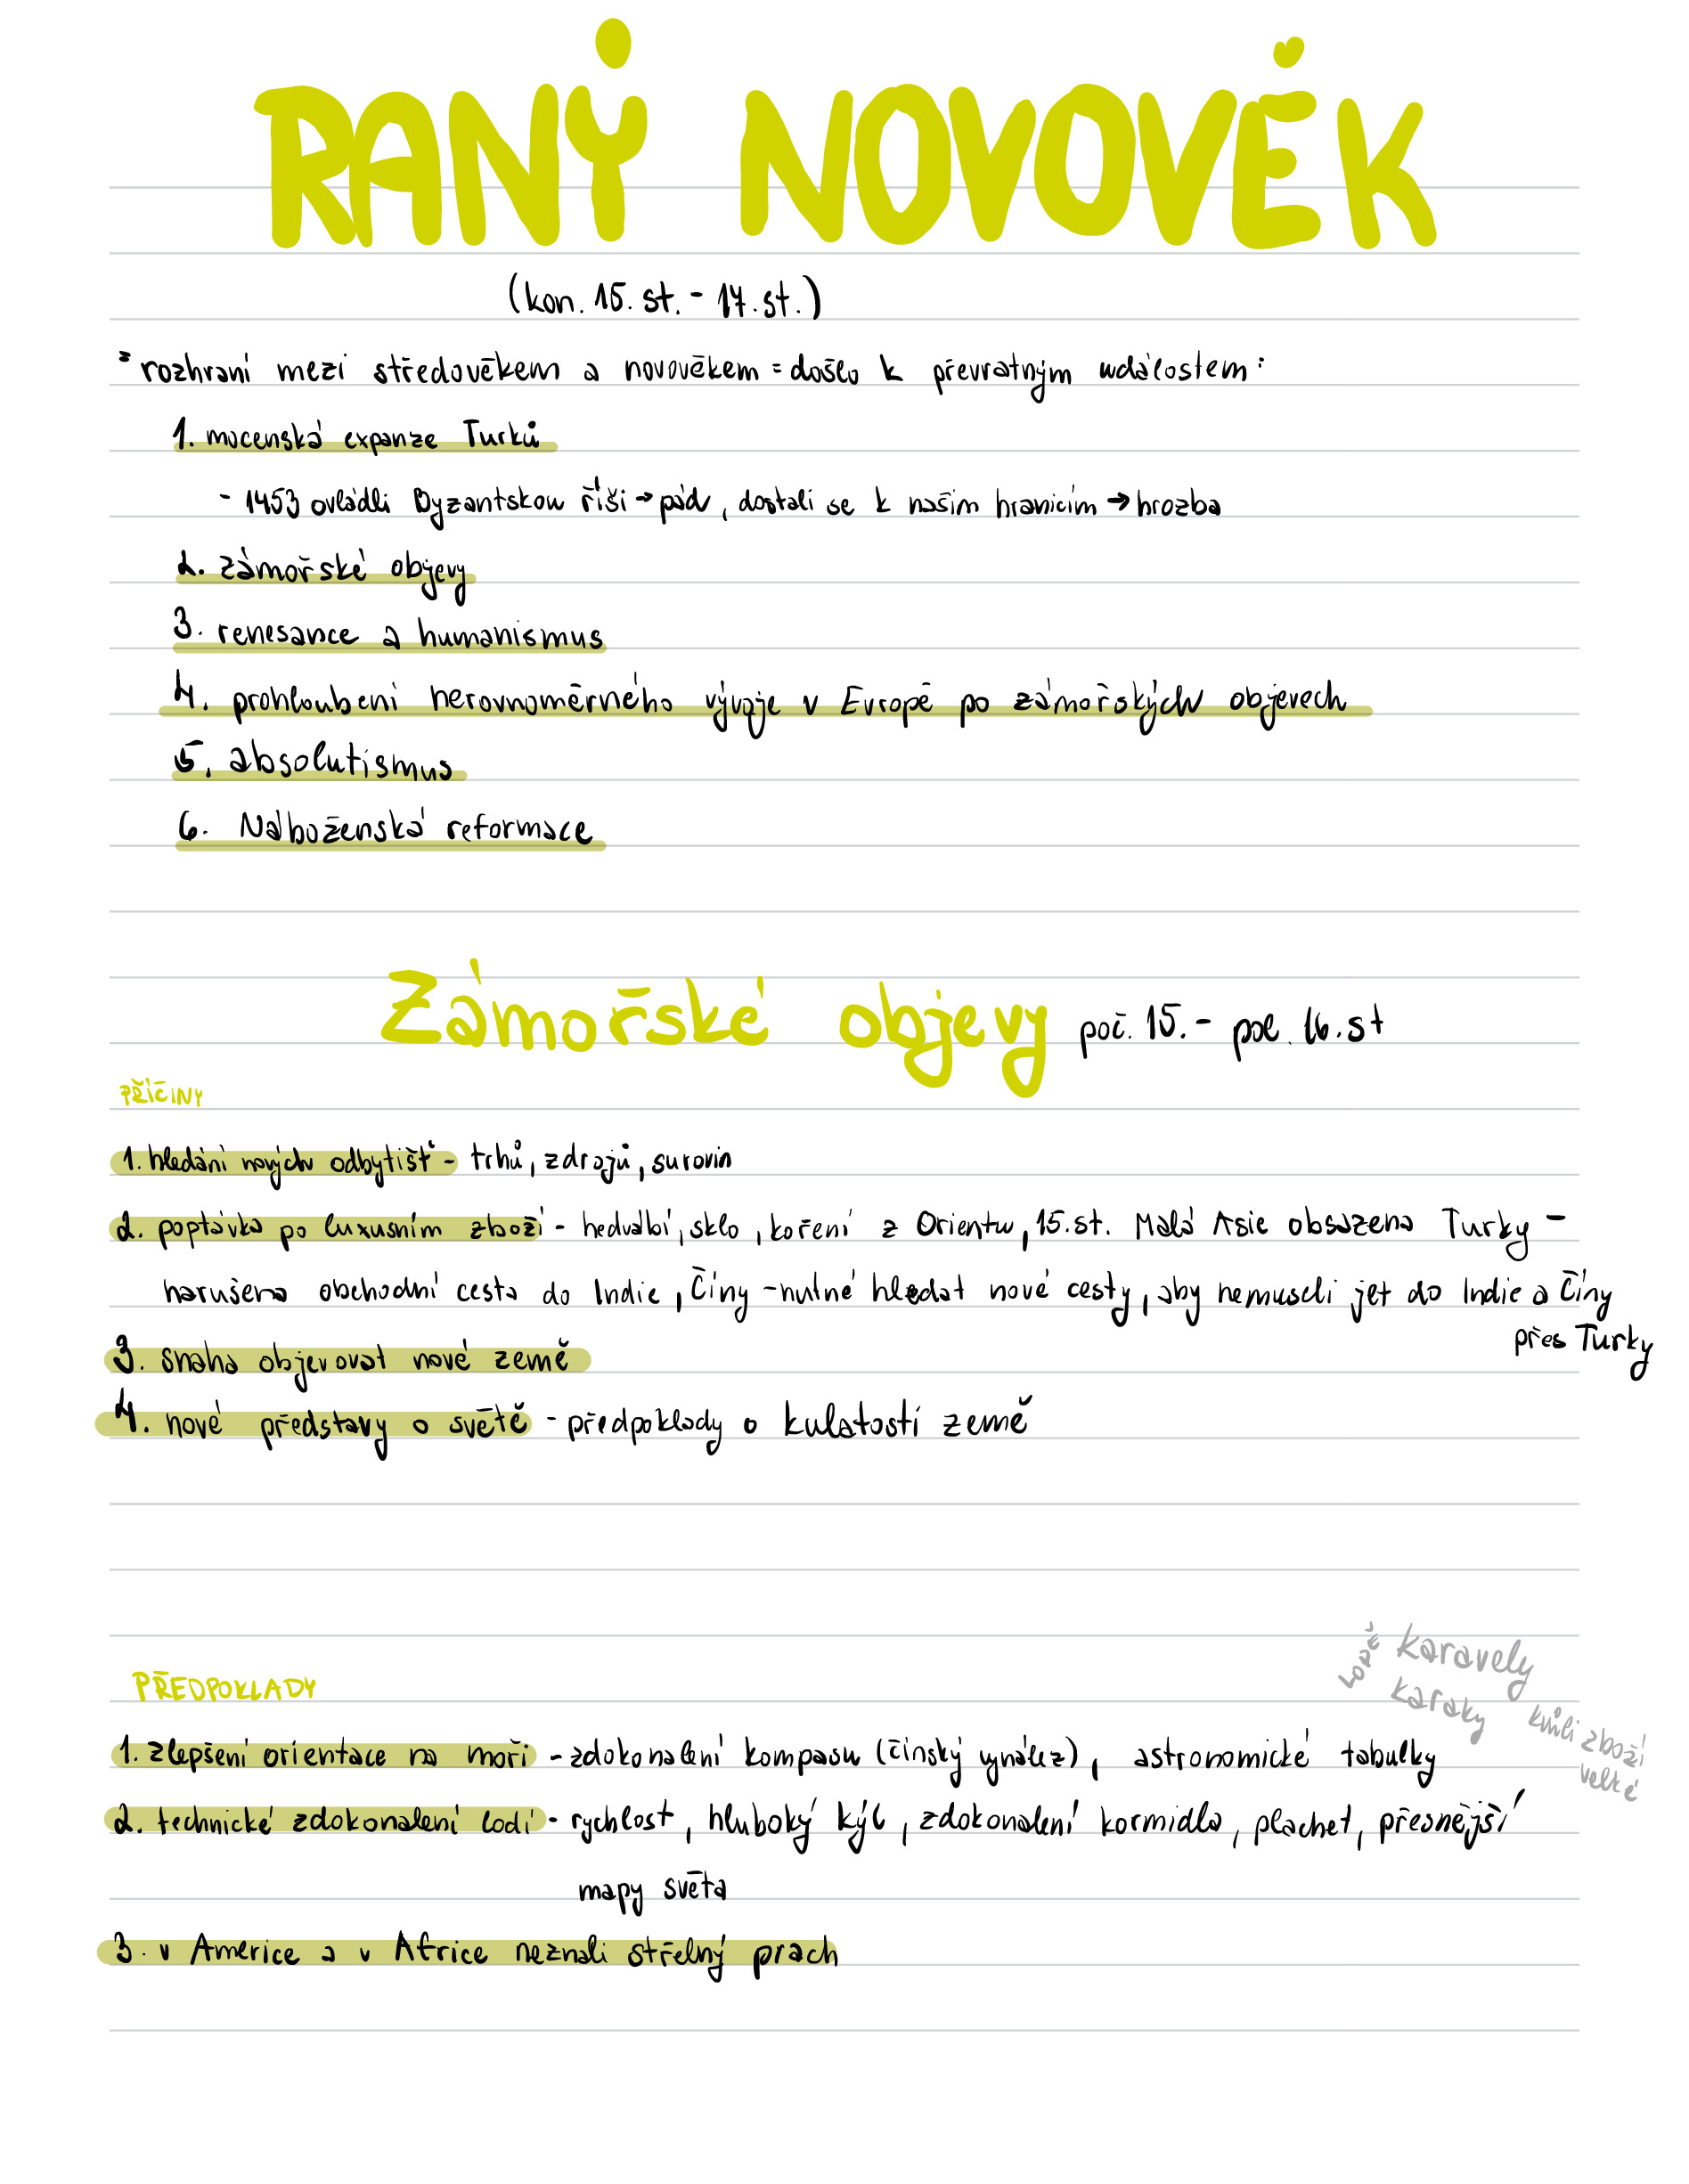 RANÝ NOVOVĚK
(kon. 15. st. - 17. st.)
= rozhraní mezi středověkem a novověkem = došlo k převratným událostem:
1. mocenská expanze Turků
- 1453 ovládli Byzantskou říši → pád, dostali se k našim hranicím → hrozba
2. zámořské objevy
3. renesance a humanismus
4. prohloubení nerovnoměrného vývoje v Evropě po zámořských objevech
5. absolutismus
6. Náboženská reformace
Zámořské objevy poč. 15. - pol. 16. st
PŘÍČINY
1. hledání nových odbytišť - trhů, zdrojů, surovin
2. poptávka po luxusním zboží - hedvábí, sklo, koření z Orientu, 15. st. Malá Asie obsazena Turky -
narušena obchodní cesta do Indie, Číny - nutné hledat nové cesty, aby nemuseli jet do Indie a Číny
přes Turky
3. snaha objevovat nové země
4. nové představy o světě - předpoklady o kulatosti země
LODĚ karavely
karaky
kvůli zboží
velké
PŘEDPOKLADY
1. zlepšení orientace na moři - zdokonalení kompasu (čínský vynález), astronomické tabulky
2. technické zdokonalení lodí - rychlost, hluboký kýl, zdokonalení kormidla, plachet, přesnější
mapy světa
3. v Americe a v Africe neznali střelný prach